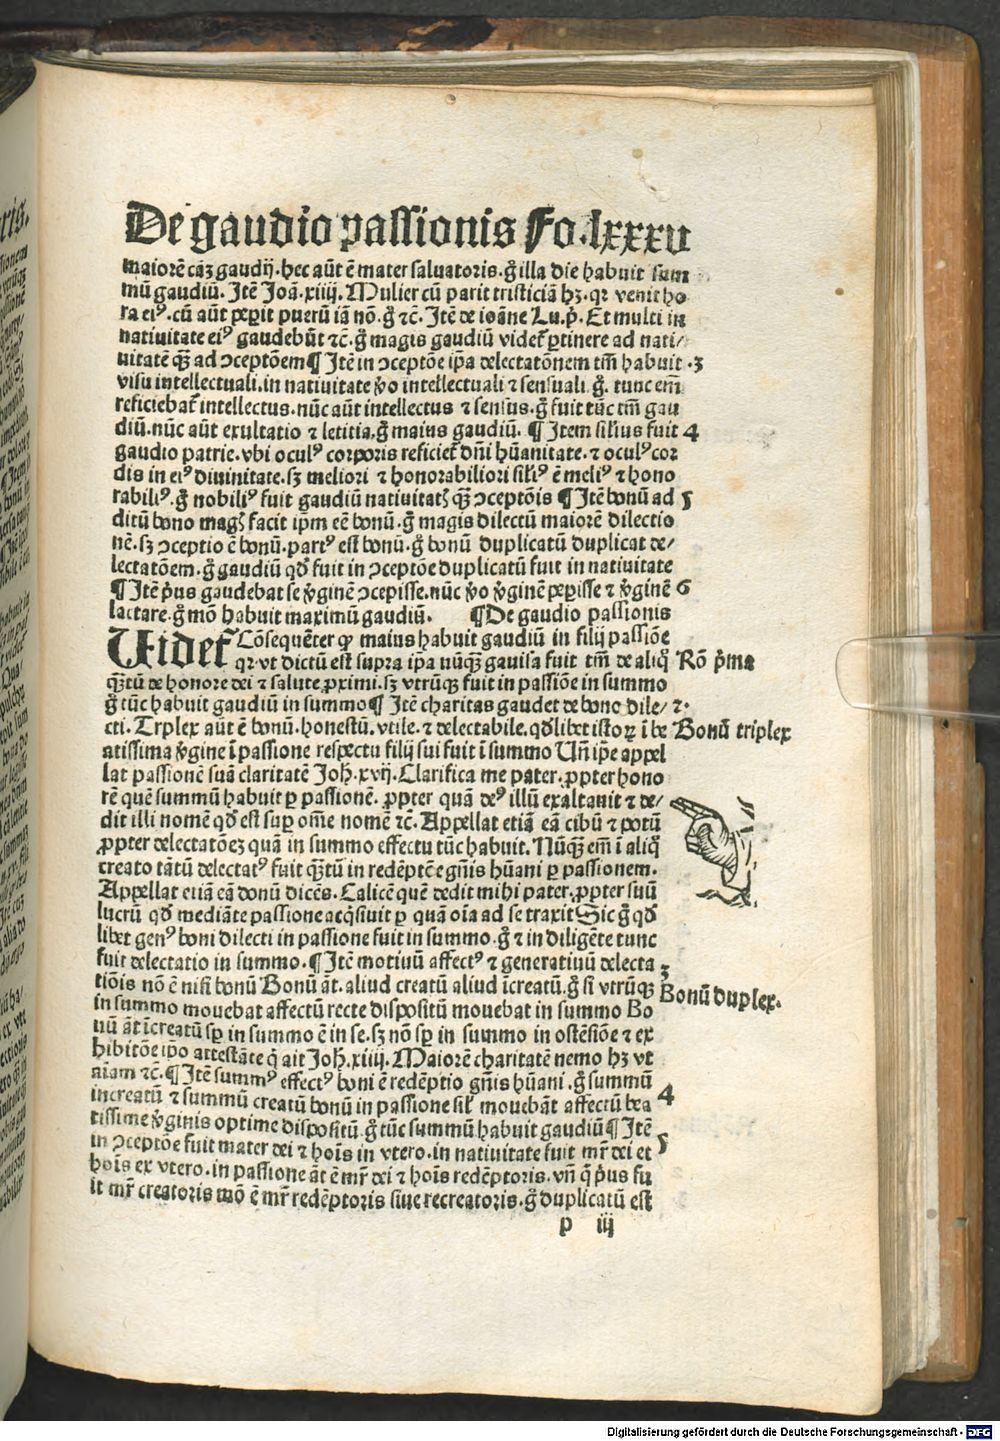 De gaudio passionis Fo. lxxxv
maiorē cāʒ gaudij. hec aūt ē mater saluatoris. g̊ illa die habuit sum
mū gaudiū. Itē Joā. xiiij. Mulier cū parit tristiciā hʒ. qr venit ho
ra eiꝰ. cū aūt peꝑit puerū iā nō. g̊ ⁊c̄. Itē de ioāne Lu. p̊. Et multi in
natiuitate eiꝰ gaudebūt ⁊c̄. g̊ magis gaudiū videt̄ ꝑtinere ad nati/
uitatē qʒ̄ ad ↄceptōem ¶ Itē in ↄceptōe ip̄a delectatōnem tm̄ habuit . 3
visu intellectuali. in natiuitate v̊o intellectuali ⁊ sensuali g̊. tunc em̄
reficiebat̄ intellectus. nūc aūt intellectus ⁊ sensus. g̊ fuit tūc tm̄ gau
diū. nūc aūt exultatio ⁊ letitia. g̊ maius gaudiū. ¶ Item sil'ius fuit 4
gaudio patrie. vbi oculꝰ corporis reficiet̄ dn̄i hūanitate. ⁊ oculꝰ cor
dis in eiꝰ diuinitate. sʒ meliori ⁊ honorabiliori sil'iꝰ ē meliꝰ ⁊ hono
rabiliꝰ. g̊ nobiliꝰ fuit gaudiū natiuitatꝭ qʒ̄ ↄceptōis ¶ Itē bonū ad 5
ditū bono magꝭ facit ip̄m eē bonū. g̊ magis dilectū maiorē dilectio
nē. sʒ ↄceptio ē bonū. partꝰ est bonū. g̊ bonū duplicatū duplicat de/
lectatōem. g̊ gaudiū qd̊ fuit in ↄceptōe duplicatū fuit in natiuitate
¶ Itē p̊us gaudebat se v̊ginē ↄcepisse. nūc v̊o v̊ginē peꝑisse ⁊ v̊ginē 6
lactare. g̊ mō habuit maximū gaudiū. ¶ De gaudio passionis
Videt̄ Cōsequēter ꝙ maius habuit gaudiū in filij passiōe
qr vt dictū est supra ip̄a nūqʒ̄ gauisa fuit tm̄ de aliq̊ Rō p̊ma
qʒ̄tū de honore dei ⁊ salute ꝓximi. sʒ vtrūqʒ fuit in passiōe in summo
g̊ tūc habuit gaudiū in summo ¶ Itē charitas gaudet de bono dile/ 2.
cti. Trplex aūt ē bonū. honestū. vtile. ⁊ delectabile. qd̊libet istoꝝ ī be Bonū triplex
atissima v̊gine ī passione respectu filij sui fuit ī summo Un̄ ip̄e appel
lat passionē suā claritatē Joh̄. xvij. Clarifica me pater. ꝓpter hono
rē quē summū habuit ꝑ passionē. ꝓpter quā deꝰ illū exaltauit ⁊ de/
dit illi nomē qd̊ est suꝑ om̄e nomē ⁊c̄. Appellat etiā eā cibū ⁊ potū
ꝓpter delectatōeʒ quā in summo effectu tūc habuit. Nūqʒ̄ em̄ ī aliq̊
creato tātū delectatꝰ fuit qʒ̄tū in redēptōe gn̄is hūani ꝑ passionem.
Appellat etiā eā donū dicēs. Calicē quē dedit mihi pater. ꝓpter suū
lucrū qd̊ mediāte passione acq̊siuit ꝑ quā oīa ad se traxit Sic g̊ qd̊
libet genꝰ boni dilecti in passione fuit in summo. g̊ ⁊ in diligēte tunc
fuit delectatio in summo. ¶ Itē motiuū affectꝰ ⁊ generatiuū delecta 3
tiōis nō ē nisi bonū Bonū āt. aliud creatū aliud īcreatū. g̊ si vtrūqʒ Bonū duplex.
in summo mouebat affectū recte dispositū mouebat in summo Bo
nū āt īcreatū sꝑ in summo ē in se. sʒ nō sꝑ in summo in ostēsiōe ⁊ ex
hibitōe ip̄o attestāte q̊ ait Joh̄. xiiij. Maiorē charitatē nemo hʒ vt
aīam ⁊c̄. ¶ Itē summꝰ effectꝰ boni ē redēptio gn̄is hūani. g̊ summū
increatū ⁊ summū creatū bonū in passione sil' mouebāt affectū bea 4
tissime v̊ginis optime dispositū. g̊ tūc summū habuit gaudiū ¶ Itē
in ↄceptōe fuit mater dei ⁊ hoīs in vtero. in natiuitate fuit mr̄ dei et 5
hoīs ex vtero. in passione āt ē mr̄ dei ⁊ hoīs redēptoris. vn̄ q̊ p̊us fu
it mr̄ creatoris mō ē mr̄ redēptoris siue recreatoris. g̊ duplicatū est
p iij
Digitalisierung gefördert durch die Deutsche Forschungsgemeinschaft - DFG